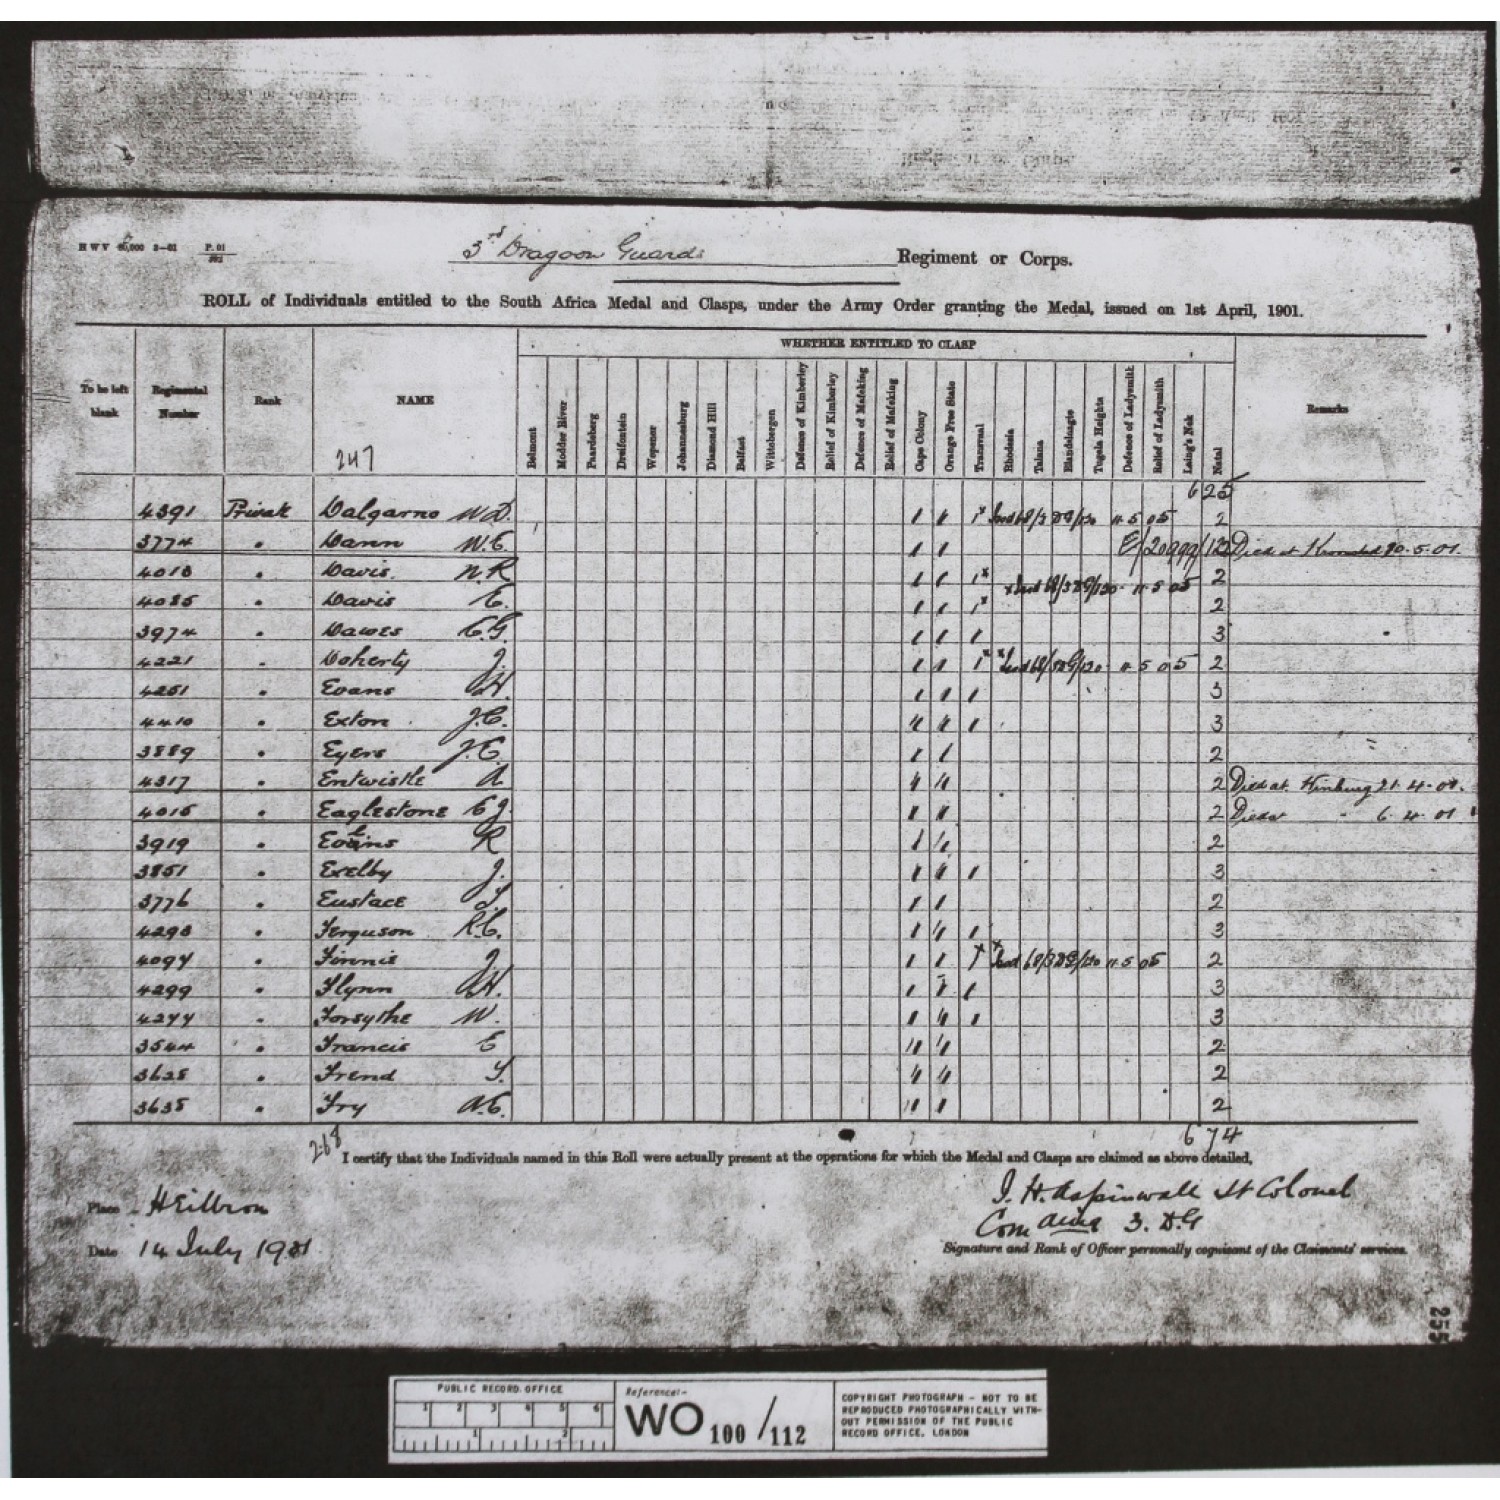 H W V 60,000 3—01 P. 01
3rd Dragoon Guards Regiment or Corps.
ROLL of Individuals entitled to the South Africa Medal and Clasps, under the Army Order granting the Medal, issued on 1st April, 1901.
WHETHER ENTITLED TO CLASP
To be left blank Regimental Number Rank NAME Belmont Modder River Paardeberg Dreifontein Wepener Johannesburg Diamond Hill Belfast Wittebergen Defence of Kimberley Relief of Kimberley Defence of Mafeking Relief of Mafeking Cape Colony Orange Free State Transvaal Rhodesia Talana Elandslaagte Tugela Heights Defence of Ladysmith Relief of Ladysmith Laing's Nek Natal Remarks
247
625
4391 Private Dalgarno W.D. 1 1 1x 68/3DG/130 11.5.05 2
3774 " Dann W.E. 1 1 E/20999/12 Died at 20.5.01.
4013 " Davis. N.R 1 1 1x 2
4085 " Davis E. 1 1 1x x 68/3DG/130 11.5.05 2
3974 " Dawes C.G. 1 1 1 3
4221 " Doherty J. 1 1 1x x 68/3DG/130 11.5.05 2
4251 " Evans A.H. 1 1 1 3
4410 " Exton J.C. 1 1 1 3
3889 " Eyers J.E. 1 1 2
4317 " Entwistle A 1 1 2 Died at 21.4.01.
4015 " Eaglestone E J. 1 1 2 Died at " 6.4.01
3919 " R 1 1 2
3851 " Exelby J. 1 1 1 3
3776 " Eustace 1 1 2
4293 " Ferguson R.C. 1 1 1 3
4094 " Finnis J 1 1 1x x 68/3DG/130 11.5.05 2
4299 " Flynn A.H. 1 1 1 3
4244 " Forsythe W. 1 1 1 3
3544 " Francis E 1 1 2
3628 " Frend 1 1 2
3635 " Fry A.E. 1 1 2
268
674
I certify that the Individuals named in this Roll were actually present at the operations for which the Medal and Clasps are claimed as above detailed,
Place Heilbron
J. H. Aspinwall Lt Colonel
Comdding 3. D.G
Date 14 July 1901
Signature and Rank of Officer personally cognisant of the Claimants' services.
255
PUBLIC RECORD OFFICE
1 2 3 4 5 6
1 2
Reference:-
WO 100/112
COPYRIGHT PHOTOGRAPH - NOT TO BE
REPRODUCED PHOTOGRAPHICALLY WITH-
OUT PERMISSION OF THE PUBLIC
RECORD OFFICE, LONDON